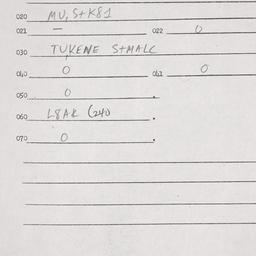 020 MU, S+K81
021 — 022 0
030 TUKENE S+MALC
040 0 041 0
050 0 .
060 L8AK (240 .
070 0 .